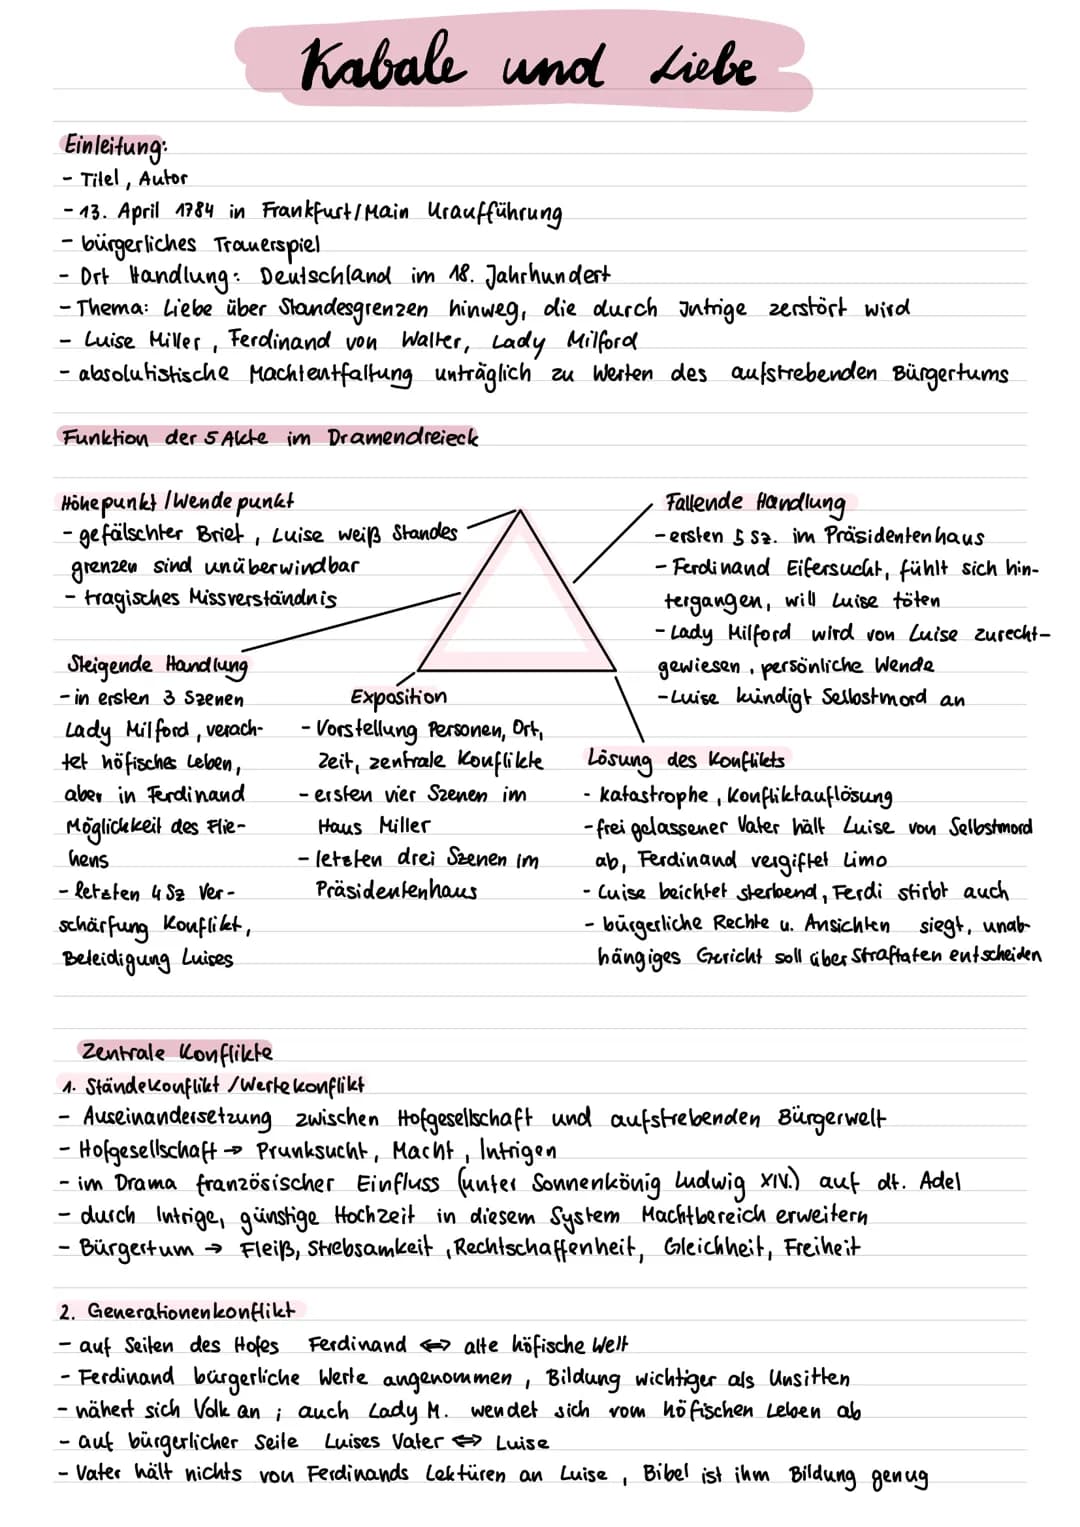 Kabale und Liebe
Einleitung:
- Titel, Autor
- 13. April 1784 in Frankfurt/Main Uraufführung
- bürgerliches Trauerspiel
- Ort Handlung: Deutschland im 18. Jahrhundert
- Thema: Liebe über Standesgrenzen hinweg, die durch Intrige zerstört wird
- Luise Miller, Ferdinand von Walter, Lady Milford
- absolutistische Machtentfaltung unträglich zu Werten des aufstrebenden Bürgertums
Funktion der 5 Akte im Dramendreieck
Höhepunkt /Wendepunkt
- gefälschter Brief, Luise weiß Standes
grenzen sind unüberwindbar
- tragisches Missverständnis
Steigende Handlung
- in ersten 3 Szenen
Lady Milford, verach-
tet höfisches Leben,
aber in Ferdinand
Möglichkeit des Flie-
hens
- letzten 4 Sz Ver-
schärfung Konflikt,
Beleidigung Luises
Exposition
- Vorstellung Personen, Ort,
Zeit, zentrale Konflikte
- ersten vier Szenen im
Haus Miller
- letzten drei Szenen im
Präsidentenhaus
Fallende Handlung
- ersten 5 Sz. im Präsidentenhaus
- Ferdinand Eifersucht, fühlt sich hin-
tergangen, will Luise töten
- Lady Milford wird von Luise zurecht-
gewiesen, persönliche Wende
- Luise kündigt Selbstmord an
Lösung des Konflikts
- Katastrophe, Konfliktauflösung
- frei gelassener Vater hält Luise von Selbstmord
ab, Ferdinand vergiftet Limo
- Luise beichtet sterbend, Ferdi stirbt auch
- bürgerliche Rechte u. Ansichten siegt, unab-
hängiges Gericht soll über Straftaten entscheiden
Zentrale Konflikte
1. Ständekonflikt /Wertekonflikt
- Auseinandersetzung zwischen Hofgesellschaft und aufstrebenden Bürgerwelt
- Hofgesellschaft → Prunksucht, Macht, Intrigen
- im Drama französischer Einfluss (unter Sonnenkönig Ludwig XIV.) auf dt. Adel
- durch Intrige, günstige Hochzeit in diesem System Machtbereich erweitern
- Bürgertum → Fleiß, Strebsamkeit, Rechtschaffenheit, Gleichheit, Freiheit
2. Generationenkonflikt
- auf Seiten des Hofes Ferdinand ⇔ alte höfische Welt
- Ferdinand bürgerliche Werte angenommen, Bildung wichtiger als Unsitten
- nähert sich Volk an ; auch Lady M. wendet sich vom höfischen Leben ab
- auf bürgerlicher Seite Luises Vater ⇔ Luise
- Vater hält nichts von Ferdinands Lektüren an Luise, Bibel ist ihm Bildung genug